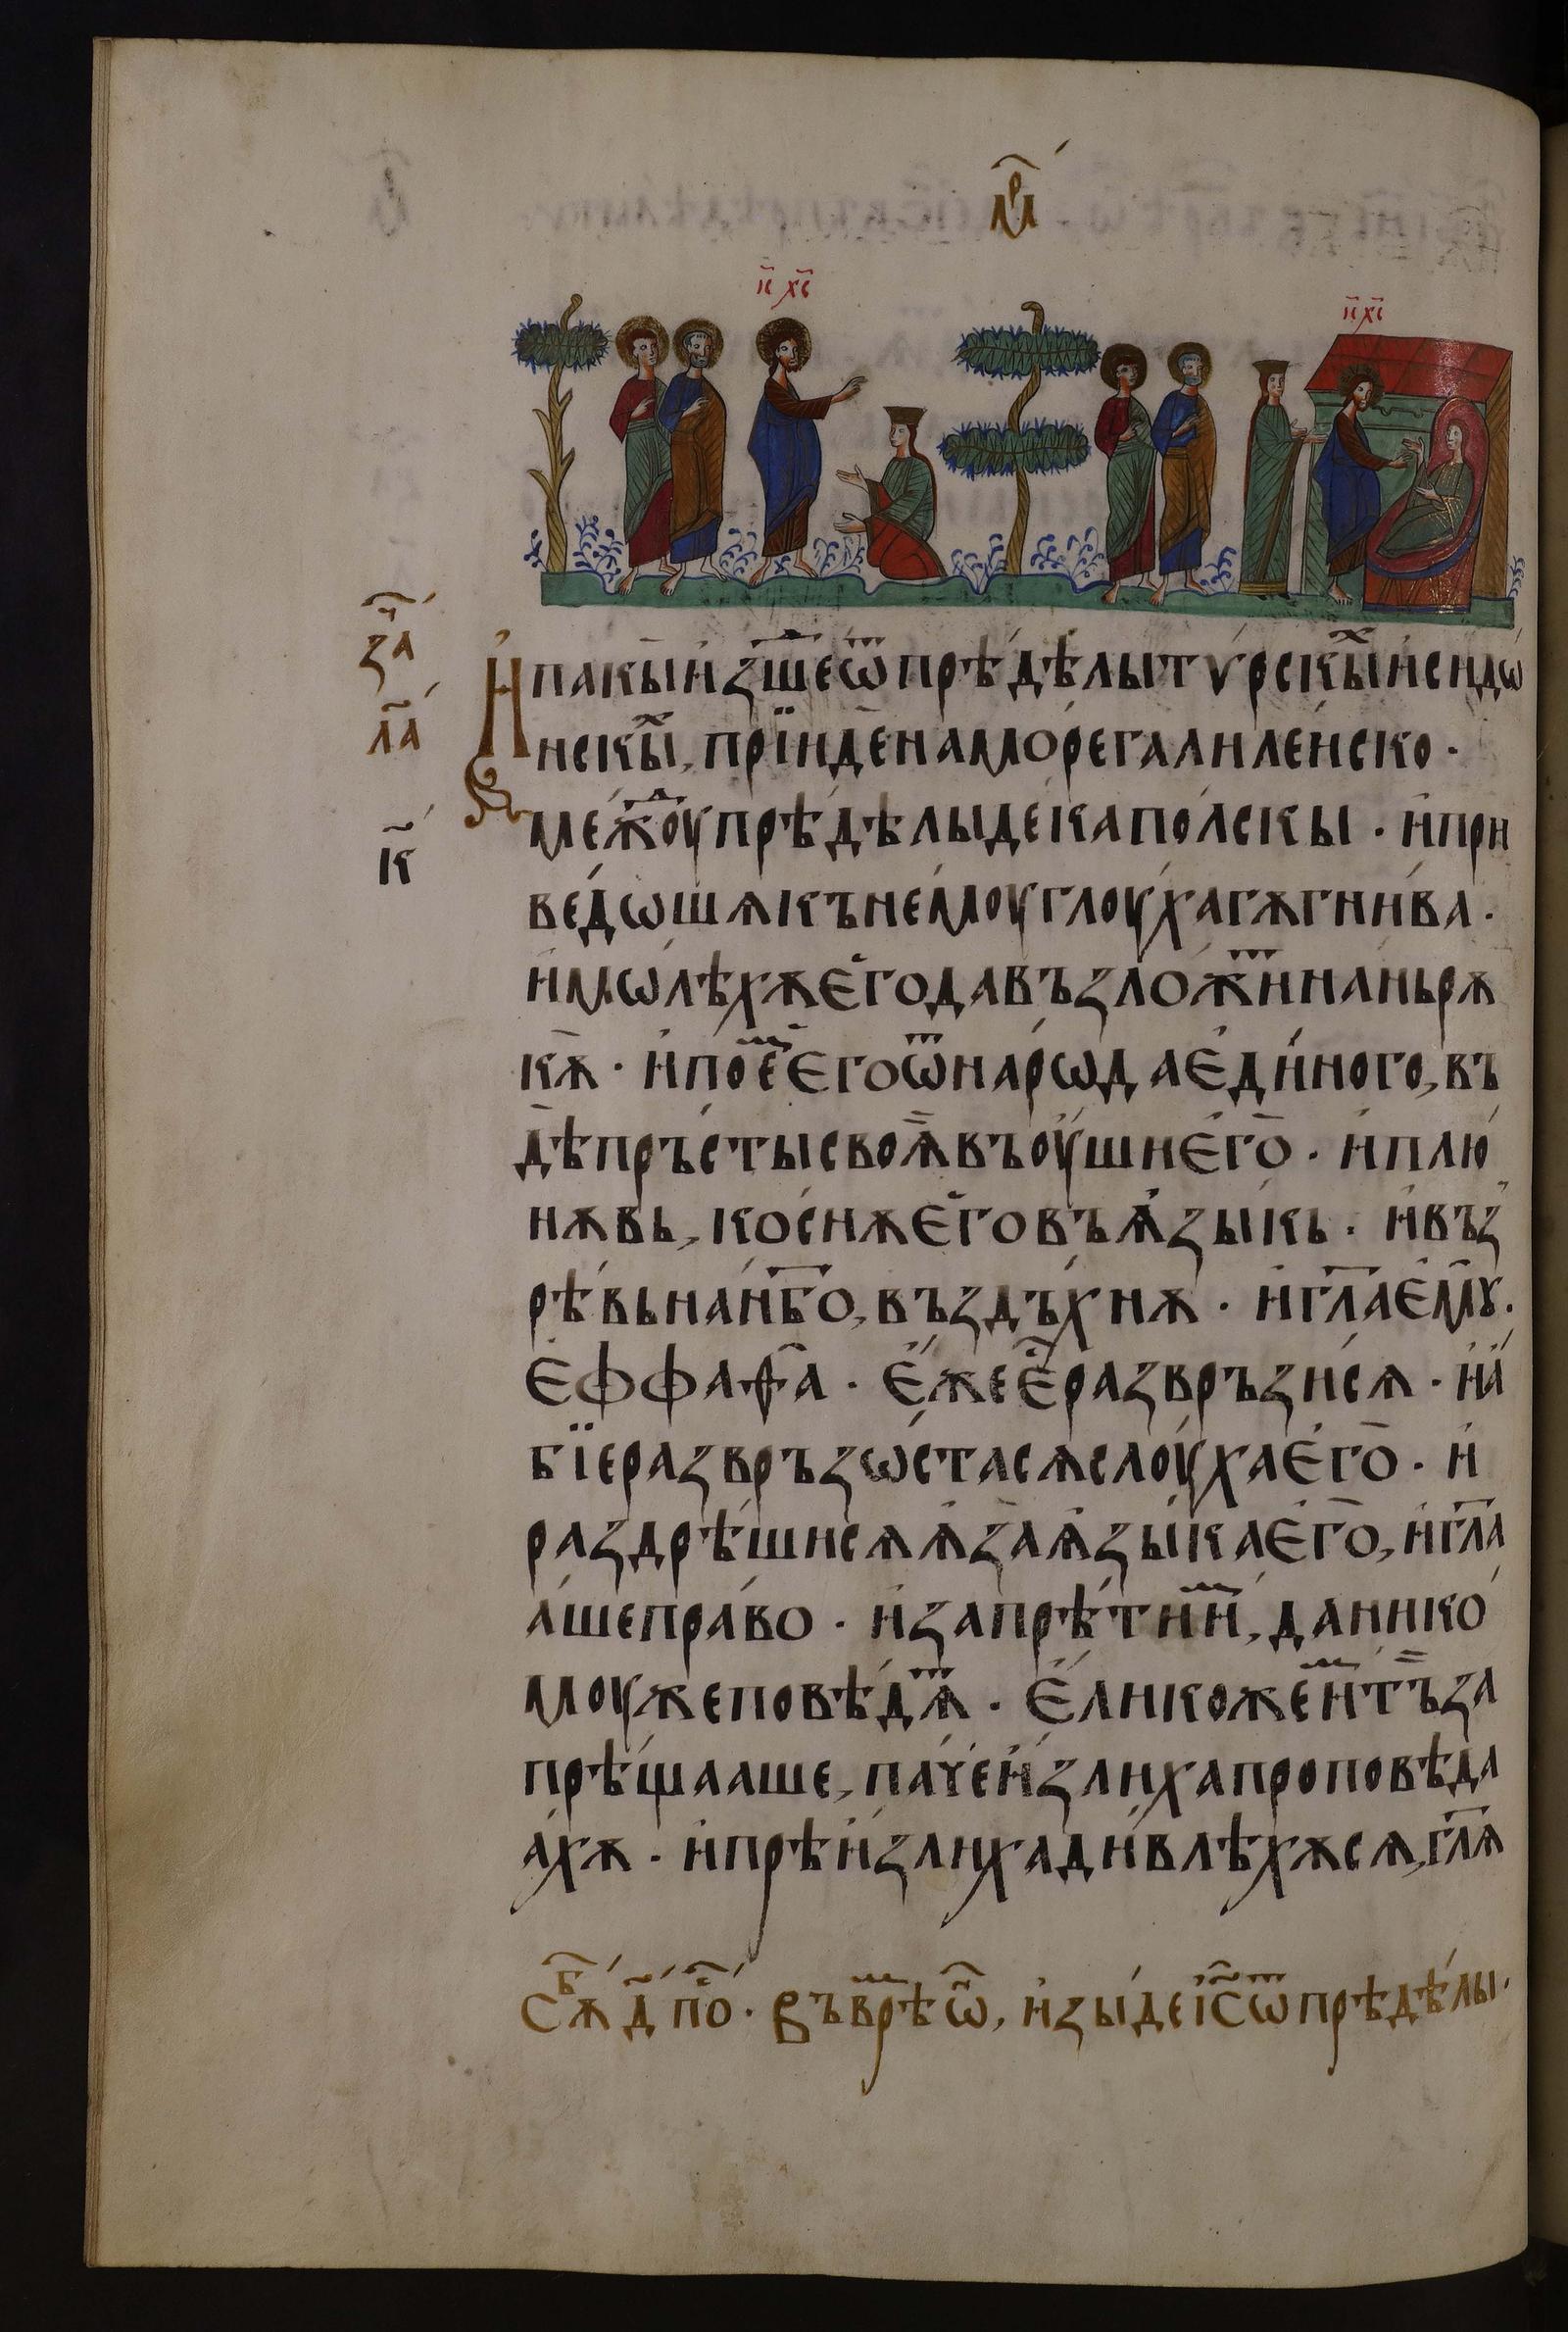 мр҃
і҃с х҃с
і҃с х҃с
за҃
ла҃
к҃
И҆ пакы и҆зше ѿ прѣдѣлы тѵрскыⷯ и҆ сидѡ
нскыⷯ, прїиде на море галиленско ·
межⷣоу прѣдѣлы декаполскы · и҆ при
ведѡшѧ къ немоу глоуха гѫгнива ·
и҆ мѡлѣхѫ є҆го да възложиⷮ на нь рѫ
кѫ · и҆ поеⷨ є҆го ѿ нарѡда є҆диного, въ
дѣ пръсты своѧ҆ въ оуши є҆го · и҆ плю
нѫвь, коснѫ є҆го въ ѧ҆зыкь · и҆ въз
рѣвь на нб҃о, въздъхнѫ · и҆ гл҃а є҆мꙋ ·
є҆ффаѳа · є҆же є҆ⷭ разврьзисѧ · и҆ а
бїе разврьзѡстасѧ слоуха є҆го · и҆
раздрѣшисѧ ѫ҆за ѧ҆зыка є҆го, и҆ гл҃а
аше право · и҆ запрѣти иⷨ, да нико
моуже повѣдѧⷮ · є҆лико же иⷨ тъ за
прѣщааше, паче и҆злиха проповѣда
ахѫ · и҆ прѣи҆злиха дивлѣхѫсѧ, гл҃ѧ
Сѫⷠ д҃ поⷭ · Въ врⷨѣ ѡ҆ⷩ, и҆зыде і҆с҃ ѿ прѣдѣлы ·